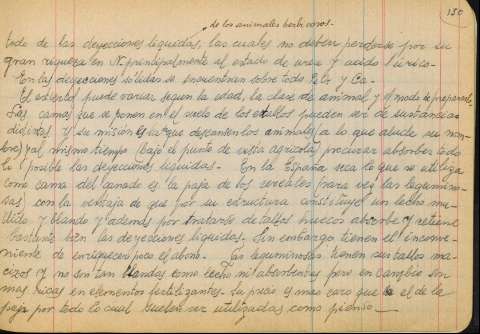 150
de los animales herbívoros.
todo de las deyecciones líquidas, las cuales no deben perderse por su
gran riqueza en N. principalmente al estado de urea y acido úrico.-
En las deyecciones sólidas se encuentran sobre todo y Ca.-
El estiércol puede variar según la edad, la clase de animal y el modo de prepararlo.
Las camas que se ponen en el suelo de los establos pueden ser de sustancias
distintas y su misión es la que descansen los animales, a lo que alude su nom-
bre, y al mismo tiempo (bajo el punto de vista agrícola) procurar absorber todo
lo posible las deyecciones líquidas.- En la España seca lo que se utiliza
como cama del ganado es la paja de los cereales (rara vez las legumino-
sas, con la ventaja de que por su estructura constituye un lecho mu-
llido y blando y además por tratarse de tallos huecos absorbe y retiene
bastante bien las deyecciones líquidas. Sin embargo tienen el inconve-
niente de enriquecer poco el abono.- Las leguminosas tienen sus tallos ma-
cizos y no son tan blandas como lecho ni absorbentes pero en cambio son
mas ricas en elementos fertilizantes.- Su precio es mas caro que el de la
paja por todo lo cual suelen ser utilizadas como pienso.-